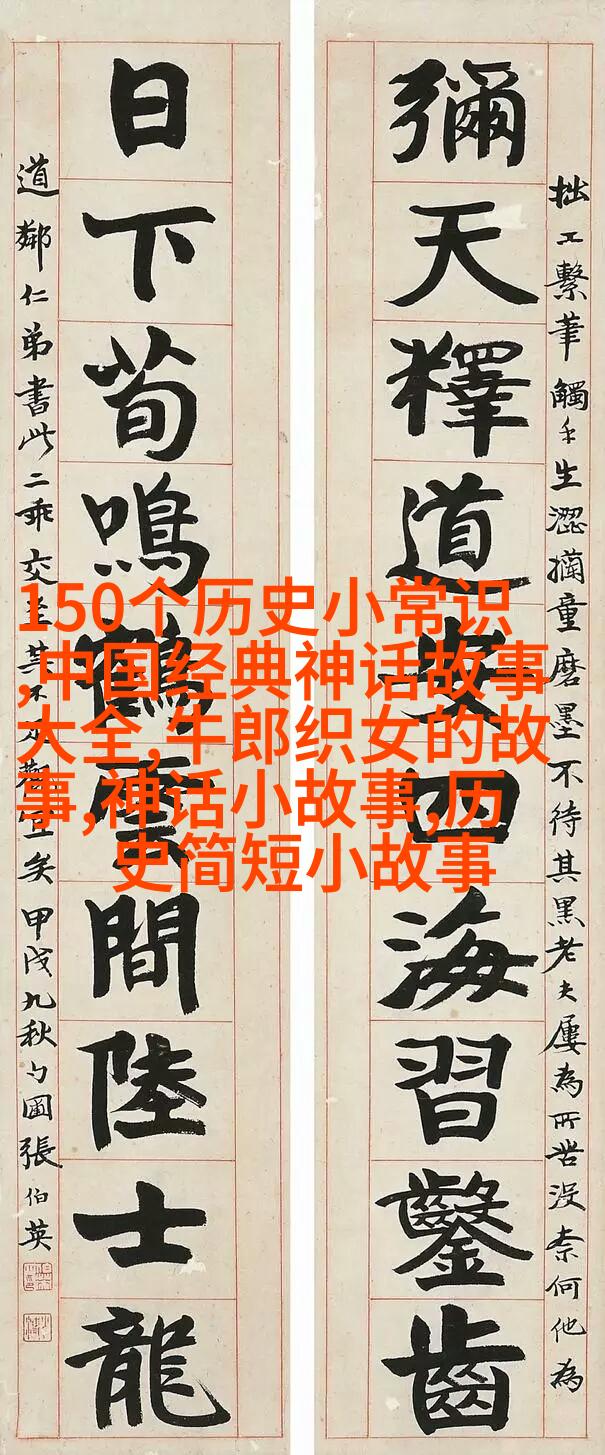 150个历史小常识
,中国经典神话故事
大全,牛郎织女的故
事,神话小故事,历
史简短小故事
拙工繫筆觸手生澀童磨墨不待其黑老夫屢為所苦沒柰何他為
彌天釋道安四海習鑿齒
日下荀鳴鶴雲間陸士龍
道鄰仁弟書此二乖交至其不足觀宜矣甲戌九秋勺圃張伯英